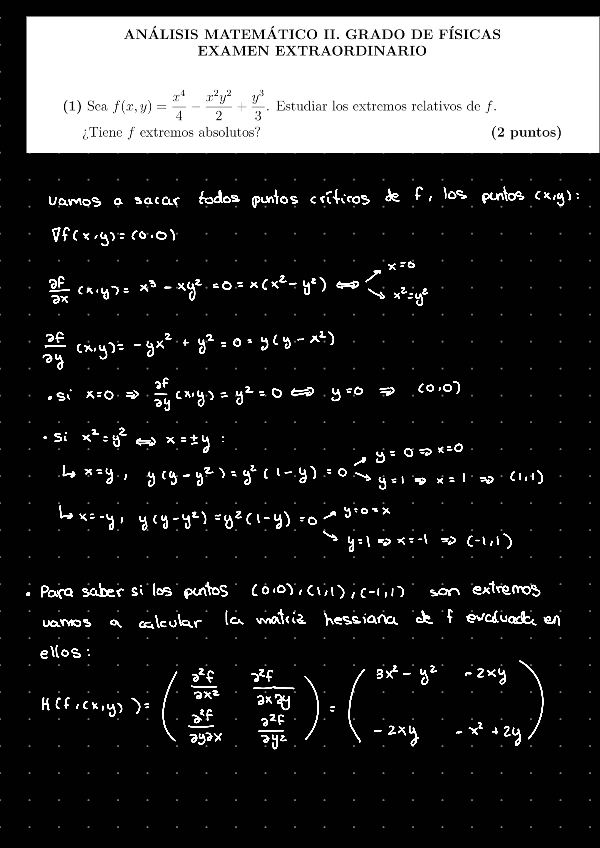 ANÁLISIS MATEMÁTICO II. GRADO DE FÍSICAS
EXAMEN EXTRAORDINARIO
(1) Sea f(x, y) = x⁴/4 − x²y²/2 + y³/3. Estudiar los extremos relativos de f.
¿Tiene f extremos absolutos? (2 puntos)
Vamos a sacar todos puntos críticos de f, los puntos (x,y):
∇f(x,y) = (0,0)
∂f/∂x (x,y) = x³ - xy² = 0 = x(x² - y²) ⇔ ↗ x=0
↘ x²=y²
∂f/∂y (x,y) = -yx² + y² = 0 = y(y - x²)
• Si x=0 ⇒ ∂f/∂y (x,y) = y² = 0 ⇔ y=0 ⇒ (0,0)
• Si x² = y² ⇔ x = ±y :
↳ x=y, y(y - y²) = y²(1 - y) = 0 ↗ y = 0 ⇒ x=0
↘ y=1 ⇒ x = 1 ⇒ (1,1)
↳ x=-y, y(y-y²) = y²(1-y) = 0 ↗ y=0=x
↘ y=1 ⇒ x=-1 ⇒ (-1,1)
• Para saber si los puntos (0,0), (1,1), (-1,1) son extremos
vamos a calcular la matriz hessiana de f evaluada en
ellos:
H(f,(x,y)) = ( ∂²f/∂x² ∂²f/∂x∂y ) = ( 3x² - y² -2xy )
( ∂²f/∂y∂x ∂²f/∂y² ) ( -2xy -x² + 2y )